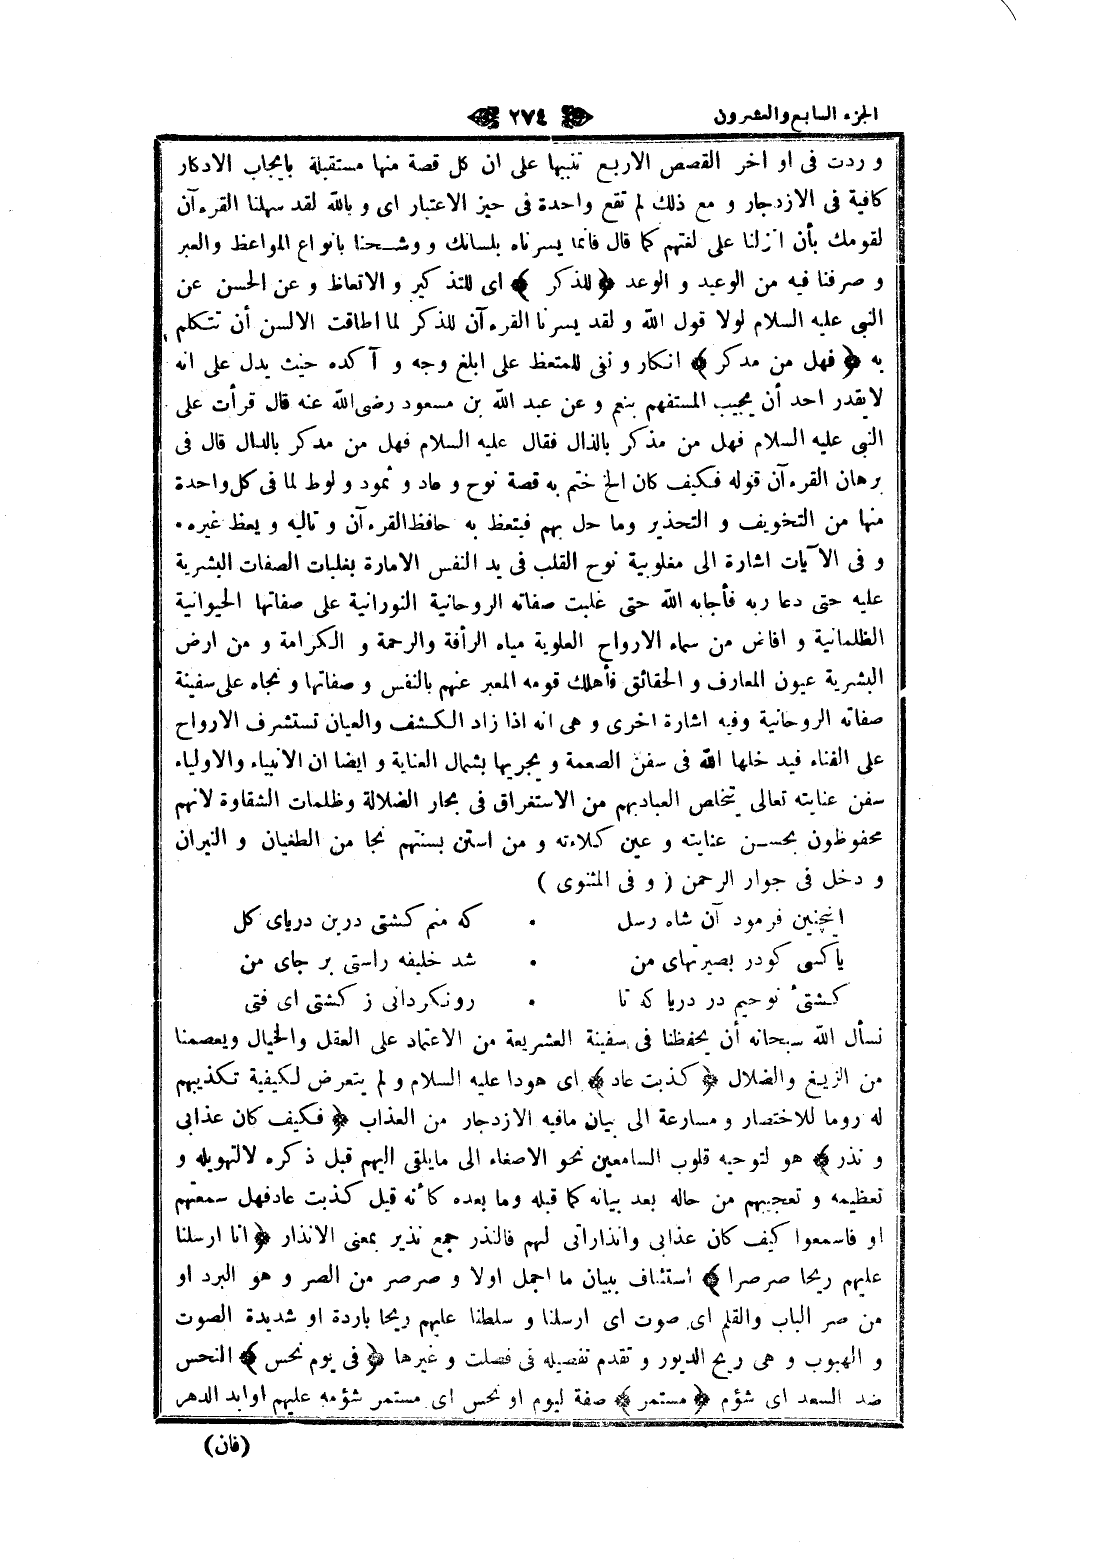 الجزء السابع والعشرون ٢٧٤
و ردت فى او اخر القصص الاربع تنبيها على ان كل قصة منها مستقبلة بايجاب الادكار
كافية فى الازدجار و مع ذلك لم تقع واحدة فى حيز الاعتبار اى و بالله لقد سهلنا القرءآن
لقومك بأن انزلنا على لغتهم كما قال فانما يسرناه بلسانك و وشحنا بانواع المواعظ والعبر
و صرفنا فيه من الوعيد و الوعد ﴿ للذكر ﴾ اى للتذكير و الاتعاظ و عن الحسن عن
النبى عليه السلام لولا قول الله و لقد يسرنا القرءآن للذكر لما اطاقت الالسن أن تتكلم
به ﴿ فهل من مدكر ﴾ انكار و نفى للمتعظ على ابلغ وجه و آكده حيث يدل على انه
لايقدر احد أن يجيب المستفهم بنعم و عن عبد الله بن مسعود رضى الله عنه قال قرأت على
النبى عليه السلام فهل من مذكر بالذال فقال عليه السلام فهل من مدكر بالدال قال فى
برهان القرءآن قوله فكيف كان الخ ختم به قصة نوح و عاد و ثمود و لوط لما فى كل واحدة
منها من التخويف و التحذير وما حل بهم فيتعظ به حافظ القرءآن و تاليه و يعظ غيره .
و فى الآيات اشارة الى مغلوبية نوح القلب فى يد النفس الامارة بغلبات الصفات البشرية
عليه حتى دعا ربه فأجابه الله حتى غلبت صفاته الروحانية النورانية على صفاتها الحيوانية
الظلمانية و افاض من سماء الارواح العلوية مياه الرأفة والرحمة و الكرامة و من ارض
البشرية عيون المعارف و الحقائق فأهلك قومه المعبر عنهم بالنفس و صفاتها و نجاه على سفينة
صفاته الروحانية وفيه اشارة اخرى و هى انه اذا زاد الكشف والعيان تستشرف الارواح
على الفناء فيد خلها الله فى سفن العصمة و يجريها بشمال العناية و ايضا ان الانبياء والاولياء
سفن عنايته تعالى يتخلص العبادبهم من الاستغراق فى بحار الضلالة وظلمات الشقاوة لانهم
محفوظون بحسن عنايته و عين كلاءته و من استن بسنتهم نجا من الطغيان و النيران
و دخل فى جوار الرحمن ( و فى المثنوى )
اينچنين فرمود آن شاه رسل . كه منم كشتى درين درياى كل
ياكسى كودر بصيرتهاى من . شد خليفه راستى بر جاى من
كشتئ نوحيم در دريا كه تا . رونكردانى ز كشتى اى فتى
نسأل الله سبحانه أن يحفظنا فى سفينة الشريعة من الاعتماد على العقل والخيال ويعصمنا
من الزيغ والضلال ﴿ كذبت عاد ﴾ اى هودا عليه السلام و لم يتعرض لكيفية تكذيبهم
له روما للاختصار و مسارعة الى بيان مافيه الازدجار من العذاب ﴿ فكيف كان عذابى
و نذر ﴾ هو لتوجيه قلوب السامعين نحو الاصغاء الى مايلقى اليهم قبل ذكره لالتهويله و
تعظيمه و تعجيبهم من حاله بعد بيانه كما قبله وما بعده كأنه قيل كذبت عادفهل سمعتهم
او فاسمعوا كيف كان عذابى وانذاراتى لهم فالنذر جمع نذير بمعنى الانذار ﴿ انا ارسلنا
عليهم ريحا صرصرا ﴾ استئناف ببيان ما اجمل اولا و صرصر من الصر و هو البرد او
من صر الباب والقلم اى صوت اى ارسلنا و سلطنا عليهم ريحا باردة او شديدة الصوت
و الهبوب و هى ريح الدبور و تقدم تفصيله فى فصلت و غيرها ﴿ فى يوم نحس ﴾ النحس
ضد السعد اى شؤم ﴿ مستمر ﴾ صفة ليوم او نحس اى مستمر شؤمه عليهم اوابد الدهر
(فان)